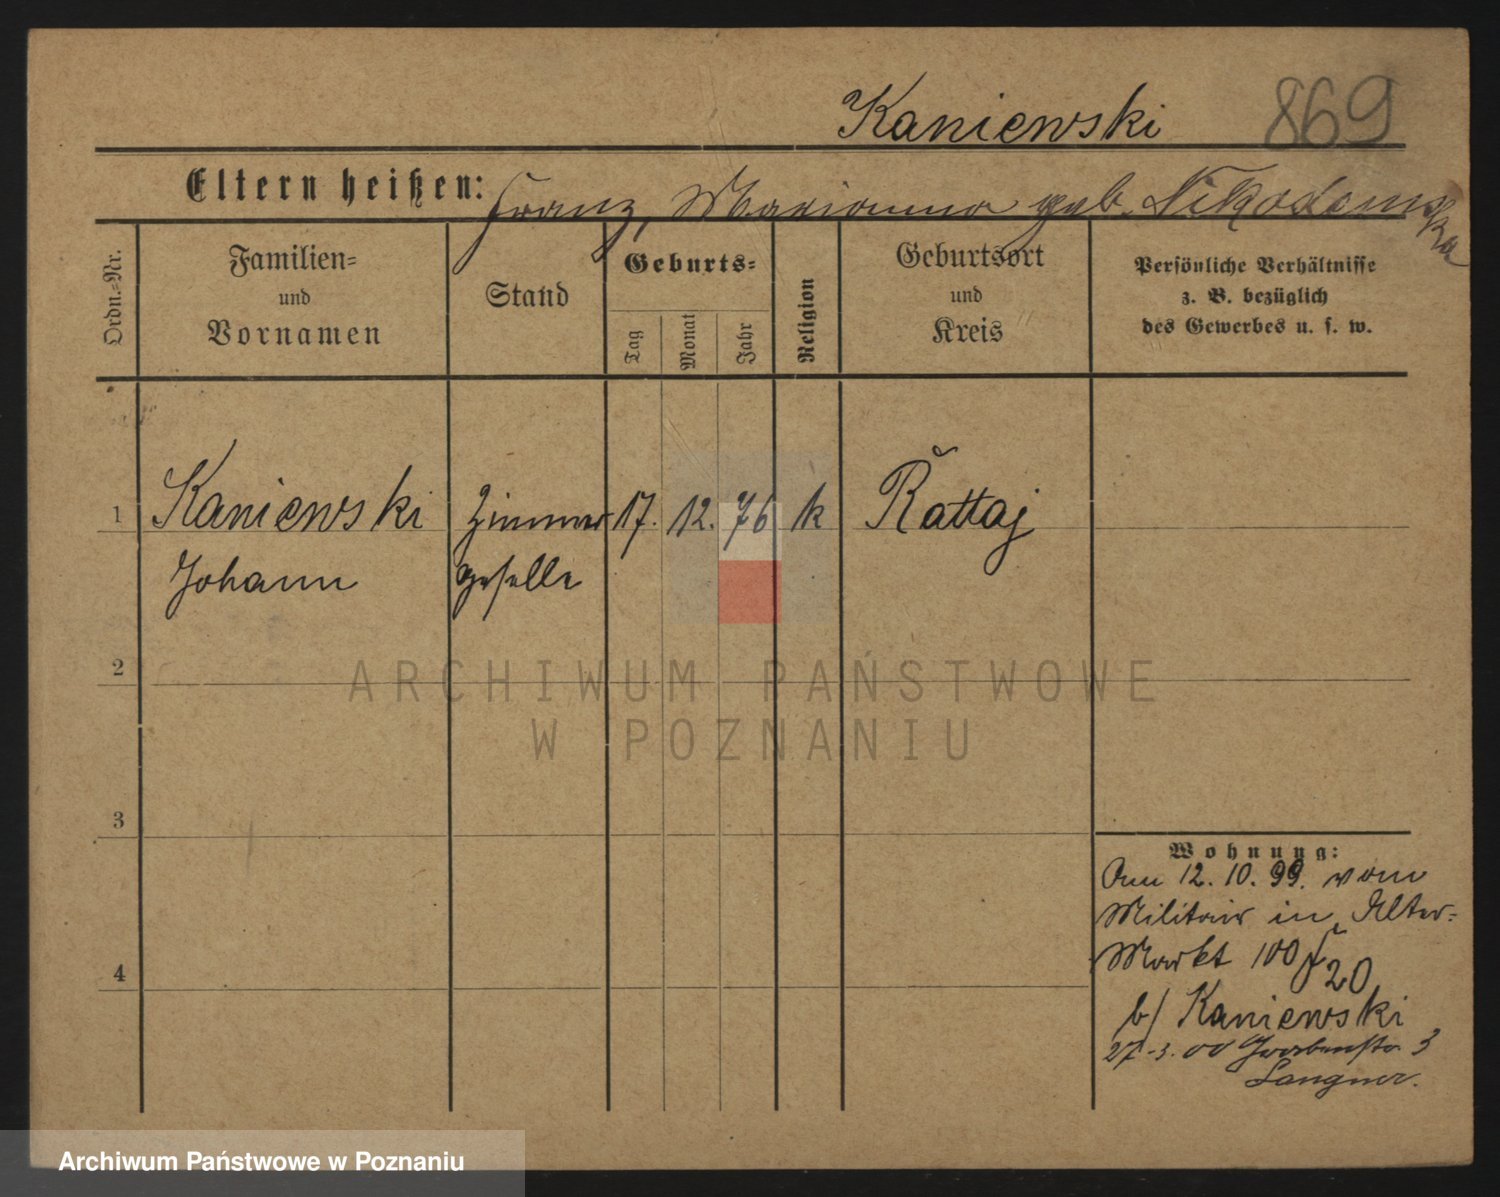 Kaniewski 869
Eltern heißen: Franz, Marianna geb. Nikodemska
Ordn.-Nr.
Familien-
und
Vornamen
Stand
Geburts-
Tag
Monat
Jahr
Religion
Geburtsort
und
Kreis
Persönliche Verhältnisse
z. B. bezüglich
des Gewerbes u. s. w.
1 Kaniewski Zimmer 17. 12. 76 k Rattaj
Johann geselle
2
ARCHIWUM PAŃSTWOWE
W POZNANIU
3
4
Wohnung:
Am 12. 10. 99. vom
Militair in Alter-
Markt 100
20
b/ Kaniewski
27-3.00 Grabenstr. 3
Langner.
Archiwum Państwowe w Poznaniu